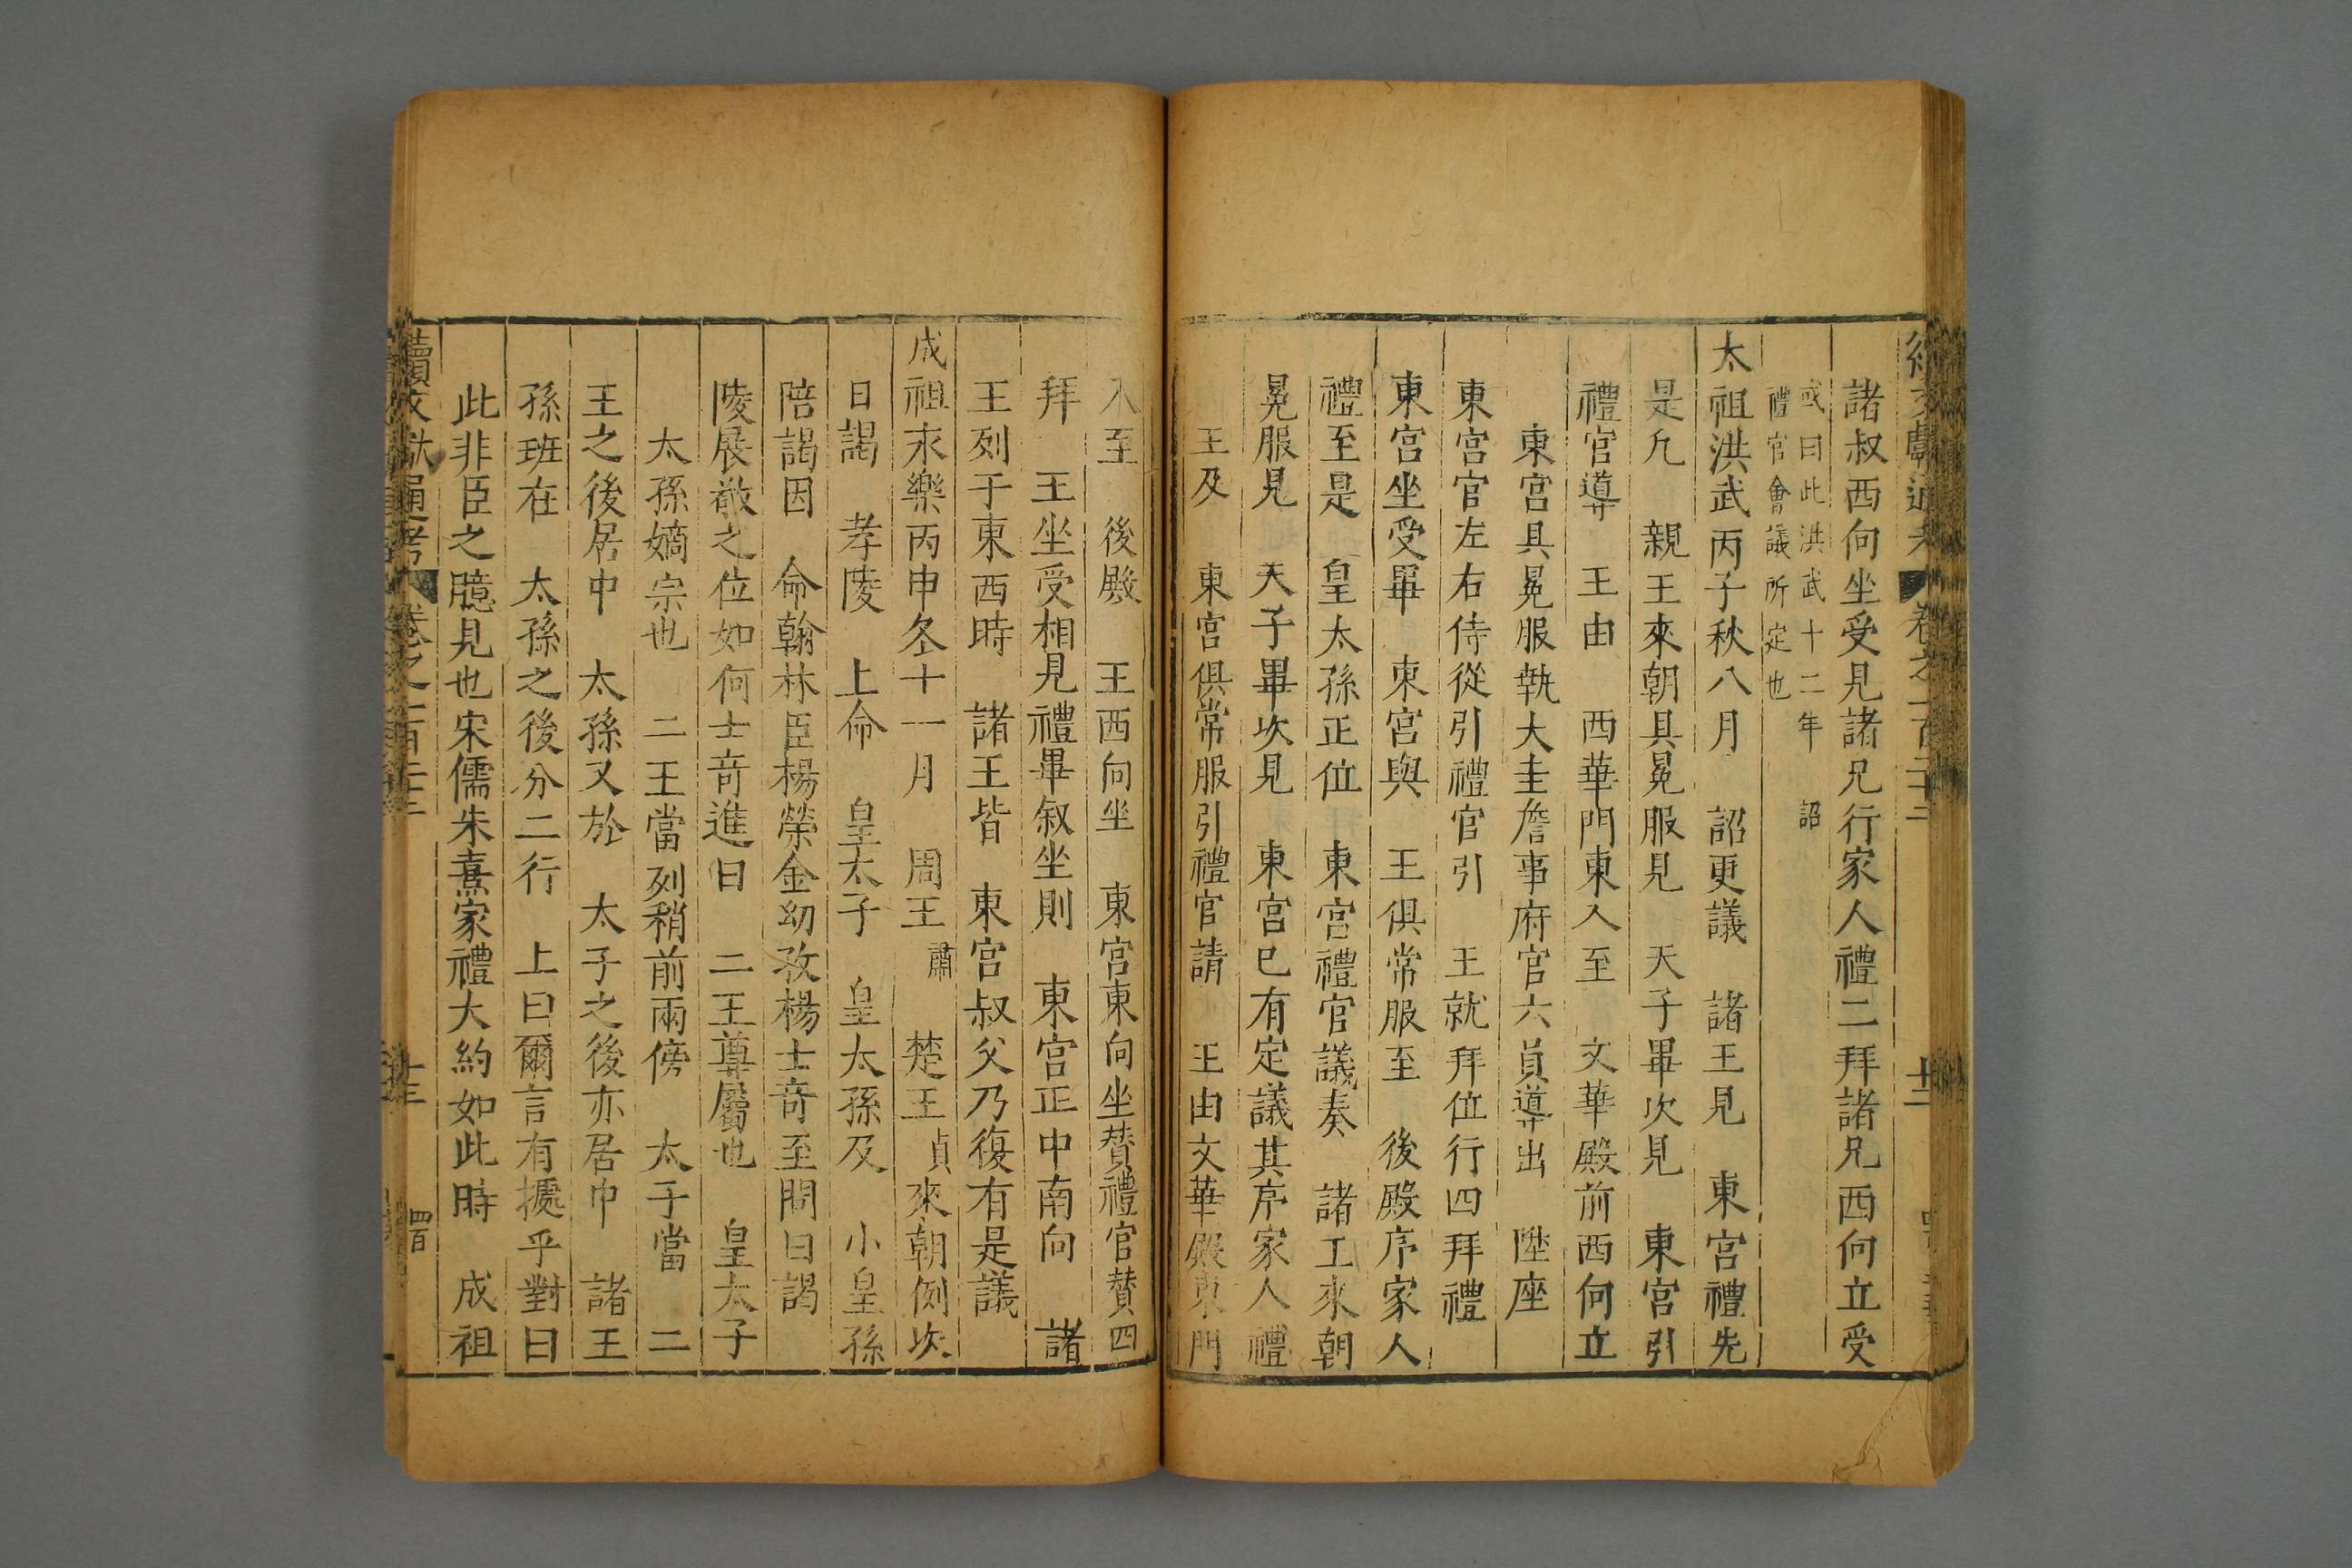 諸叔西向坐受見諸兄行家人禮二拜諸兄西向立受
或曰此洪武十二年　詔
禮官會議所定也
太祖洪武丙子秋八月　詔更議　諸王見　東宮禮先
是凢　親王來朝具冕服見　天子畢次見　東宮引
禮官導　王由　西華門東入至　文華殿前西向立
東宮具冕服執大圭詹事府官六員導出　陞座
東宮官左右侍從引禮官引　王就拜位行四拜禮
東宮坐受畢　東宮與　王俱常服至　後殿序家人
禮至是　皇太孫正位　東宮禮官議奏　諸王來朝
冕服見　天子畢次見　東宮已有定議其序家人禮
王及　東宮俱常服引禮官請　王由文華殿東門
入至　後殿　王西向坐　東宮東向坐贊禮官贊四
拜　王坐受相見禮畢叙坐則　東宮正中南向　諸
王列于東西時　諸王皆　東宮叔父乃復有是議
成祖永樂丙申冬十一月　周王肅　楚王貞來朝例次
日謁　孝陵　上命　皇太子　皇太孫及　小皇孫
陪謁因　命翰林臣楊榮金幼孜楊士奇至問曰謁
陵展敬之位如何士奇進曰　二王尊屬也　皇太子
太孫嫡宗也　二王當列稍前兩傍　太子當　二
王之後居中　太孫又於　太子之後亦居中　諸王
孫班在　太孫之後分二行　上曰爾言有據乎對曰
此非臣之臆見也宋儒朱熹家禮大約如此時　成祖
續文獻通考　卷之一百二十三　十三　四百